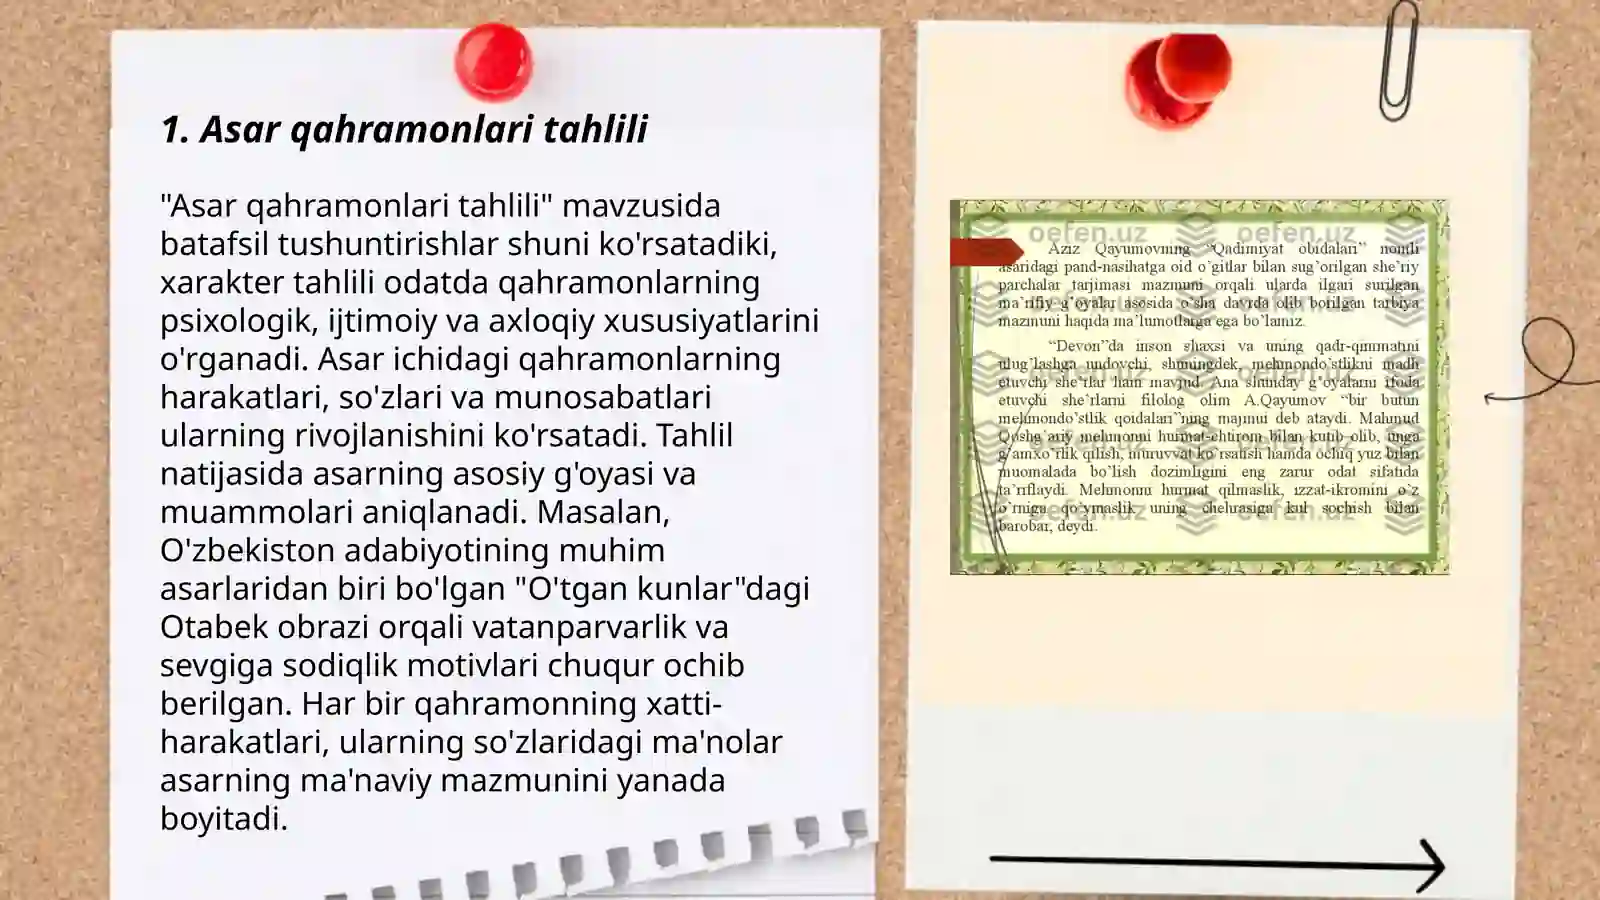 1. Asar qahramonlari tahlili
"Asar qahramonlari tahlili" mavzusida
batafsil tushuntirishlar shuni ko'rsatadiki,
xarakter tahlili odatda qahramonlarning
psixologik, ijtimoiy va axloqiy xususiyatlarini
o'rganadi. Asar ichidagi qahramonlarning
harakatlari, so'zlari va munosabatlari
ularning rivojlanishini ko'rsatadi. Tahlil
natijasida asarning asosiy g'oyasi va
muammolari aniqlanadi. Masalan,
O'zbekiston adabiyotining muhim
asarlaridan biri bo'lgan "O'tgan kunlar"dagi
Otabek obrazi orqali vatanparvarlik va
sevgiga sodiqlik motivlari chuqur ochib
berilgan. Har bir qahramonning xatti-
harakatlari, ularning so'zlaridagi ma'nolar
asarning ma'naviy mazmunini yanada
boyitadi.
oefen.uz oefen.uz
Aziz Qayumovning “Qadimiyat obidalari” nomli
asaridagi pand-nasihatga oid o’gitlar bilan sug’orilgan she’riy
parchalar tarjimasi mazmuni orqali ularda ilgari surilgan
ma’rifiy g’oyalar asosida o’sha davrda olib borilgan tarbiya
mazmuni haqida ma’lumotlarga ega bo’lamiz.
“Devon”da inson shaxsi va uning qadr-qimmatini
ulug’lashga undovchi, shuningdek, mehmondo’stlikni madh
etuvchi she’rlar ham mavjud. Ana shunday g’oyalarni ifoda
etuvchi she’rlarni filolog olim A.Qayumov “bir butun
mehmondo’stlik qoidalari”ning majmui deb ataydi. Mahmud
Qoshg’ariy mehmonni hurmat-ehtirom bilan kutib olib, unga
g’amxo’rlik qilish, muruvvat ko’rsatish hamda ochiq yuz bilan
muomalada bo’lish dozimligini eng zarur odat sifatida
ta’riflaydi. Mehmonni hurmat qilmaslik, izzat-ikromini o’z
o’rniga qo’ymaslik uning chehrasiga kul sochish bilan
barobar, deydi.